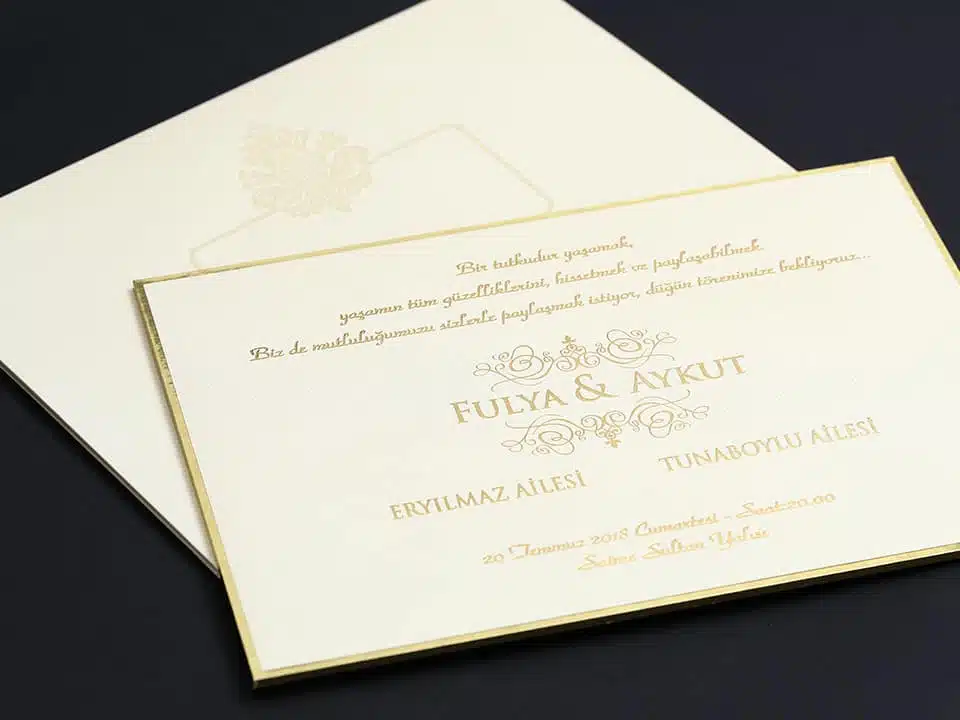 Bir tutkudur yaşamak,
yaşamın tüm güzelliklerini, hissetmek ve paylaşabilmek.
Biz de mutluluğumuzu sizlerle paylaşmak istiyor, düğün törenimize bekliyoruz...
FULYA & AYKUT
ERYILMAZ AİLESİ
TUNABOYLU AİLESİ
20 Temmuz 2018 Cumartesi - Saat:20.00
Sultan Yalısı